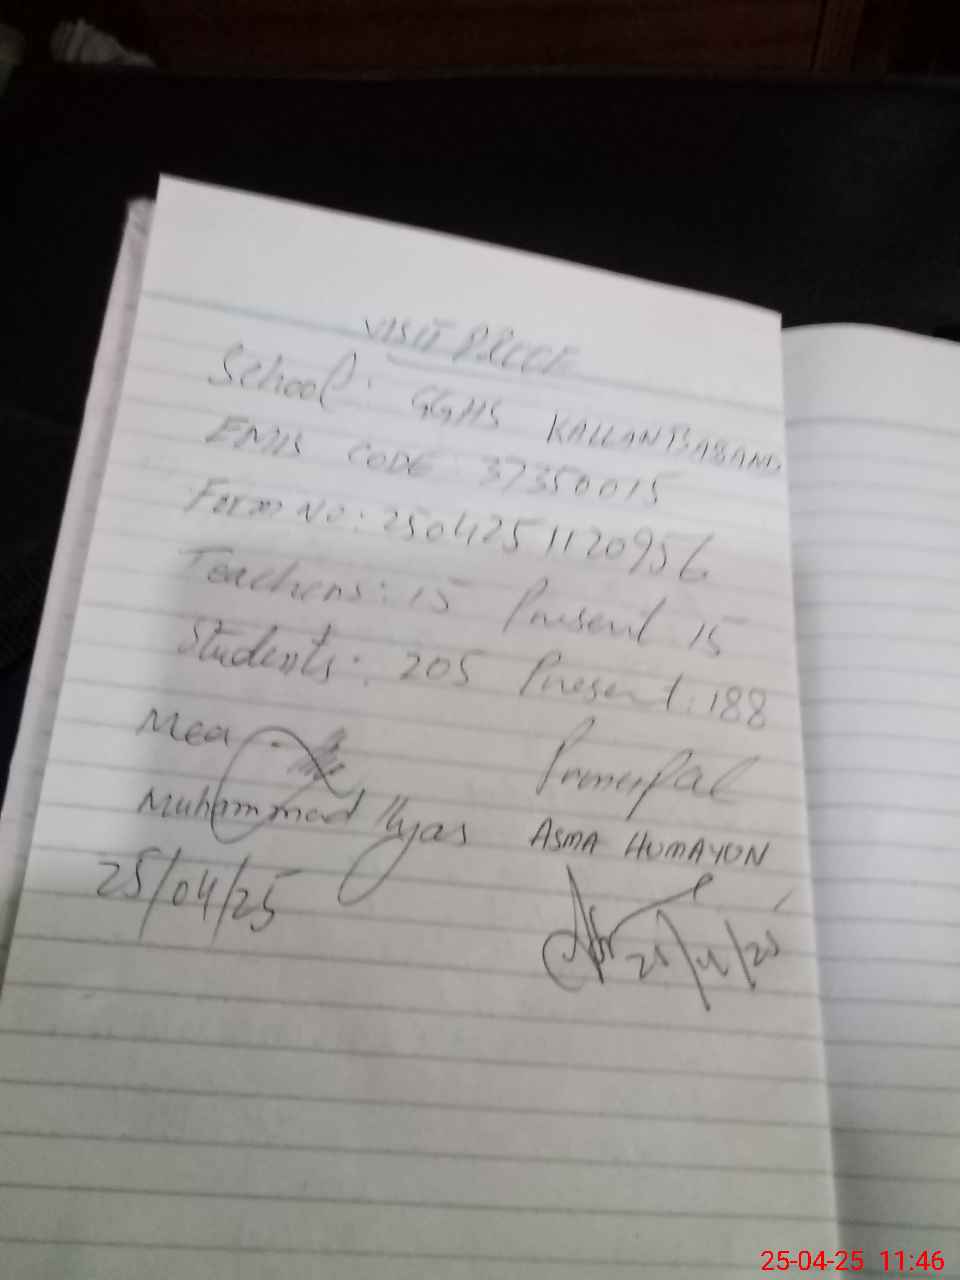 VISIT PROOF
School: GGHS KALLANBASAND
EMIS CODE: 37350015
Form No: 2504251120956
Teachers: 15 Present 15
Students: 205 Present: 188
Mea
Principal
Muhammad Ilyas ASMA HUMAYON
25/04/25
25/4/25
25-04-25 11:46